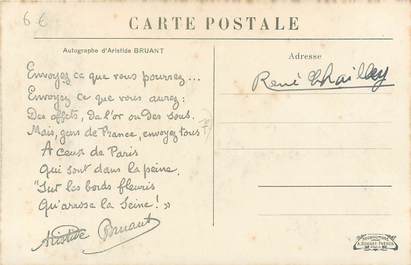 6 €
CARTE POSTALE
Autographe d'Aristide BRUANT
Adresse
Envoyez ce que vous pourrez...
Envoyez ce que vous aurez:
Des effets, de l'or ou des sous.
Mais, gens de France, envoyez tous
A ceux de Paris
Qui sont dans la peine,
"Sur les bords fleuris
Qu'arrose la Seine! »
Aristide Bruant
René Chailley